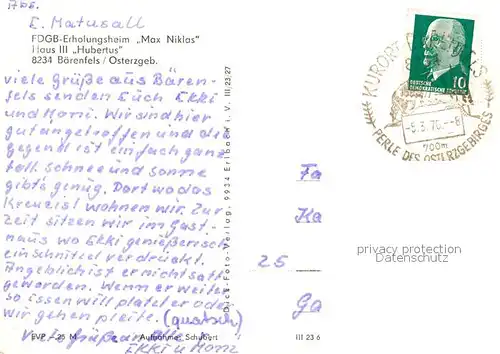 Abs.
E. Matusall
FDGB-Erholungsheim „Max Niklas"
Haus III „Hubertus"
8234 Bärenfels / Osterzgeb.
viele Grüße aus Bären-
fels senden Euch Ekki
und Moni. Wir sind hier
gut angetroffen und die
gegend ist einfach ganz
toll. Schnee und sonne
gibts genug. Dort wo das
Kreuz ist wohnen wir. Zur
zeit sitzen wir im Gast-
haus wo Ekki genießerisch
ein Schnitzel verdrückt.
Angeblich ist er nicht satt
geworden. Wenn er weiter
so essen will platzt er oder
wir gehen pleite. (quatsch)
Viele Grüße
Ekki u Moni
EVP –,25 M Aufnahme: Schubert III 23 6
Dick-Foto-Verlag, 9934 Erlbach i. V. III 23 27
10
DEUTSCHE
DEMOKRATISCHE REPUBLIK
KURORT
-5.3.76.--8
700m
PERLE DES OSTERZGEBIRGES
Fa
Ka
25
Ga
privacy protection
Datenschutz